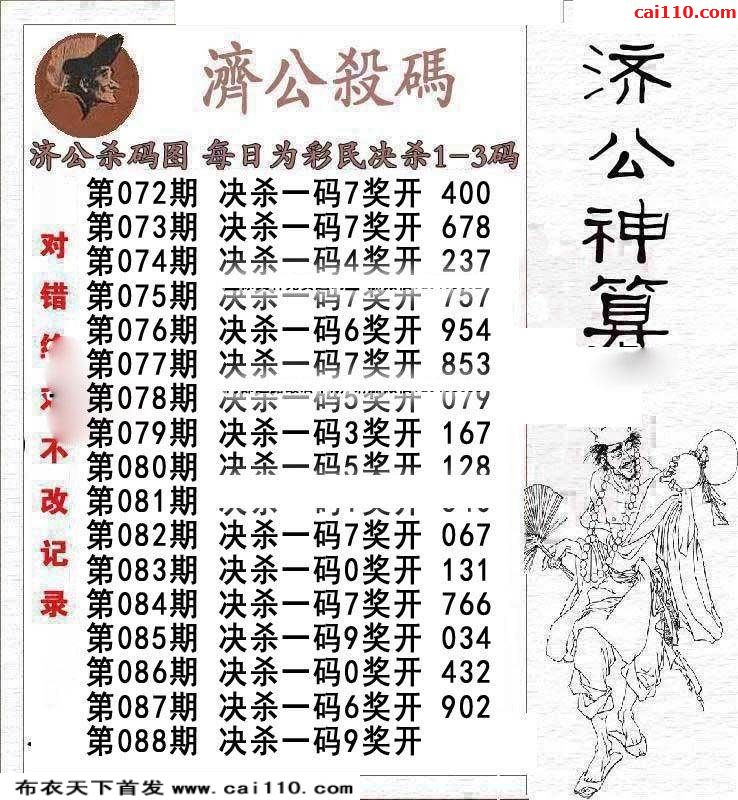 cai110.com
濟公殺碼
济公杀码图 每日为彩民决杀1-3码
第072期 决杀一码7奖开 400
第073期 决杀一码7奖开 678
第074期 决杀一码4奖开 237
第075期 决杀一码7奖开 757
第076期 决杀一码6奖开 954
第077期 决杀一码7奖开 853
第078期 决杀一码5奖开 079
第079期 决杀一码3奖开 167
第080期 决杀一码5奖开 128
第081期
第082期 决杀一码7奖开 067
第083期 决杀一码0奖开 131
第084期 决杀一码7奖开 766
第085期 决杀一码9奖开 034
第086期 决杀一码0奖开 432
第087期 决杀一码6奖开 902
第088期 决杀一码9奖开
对错
不改记录
济公神算
布衣天下首发 www.cai110.com